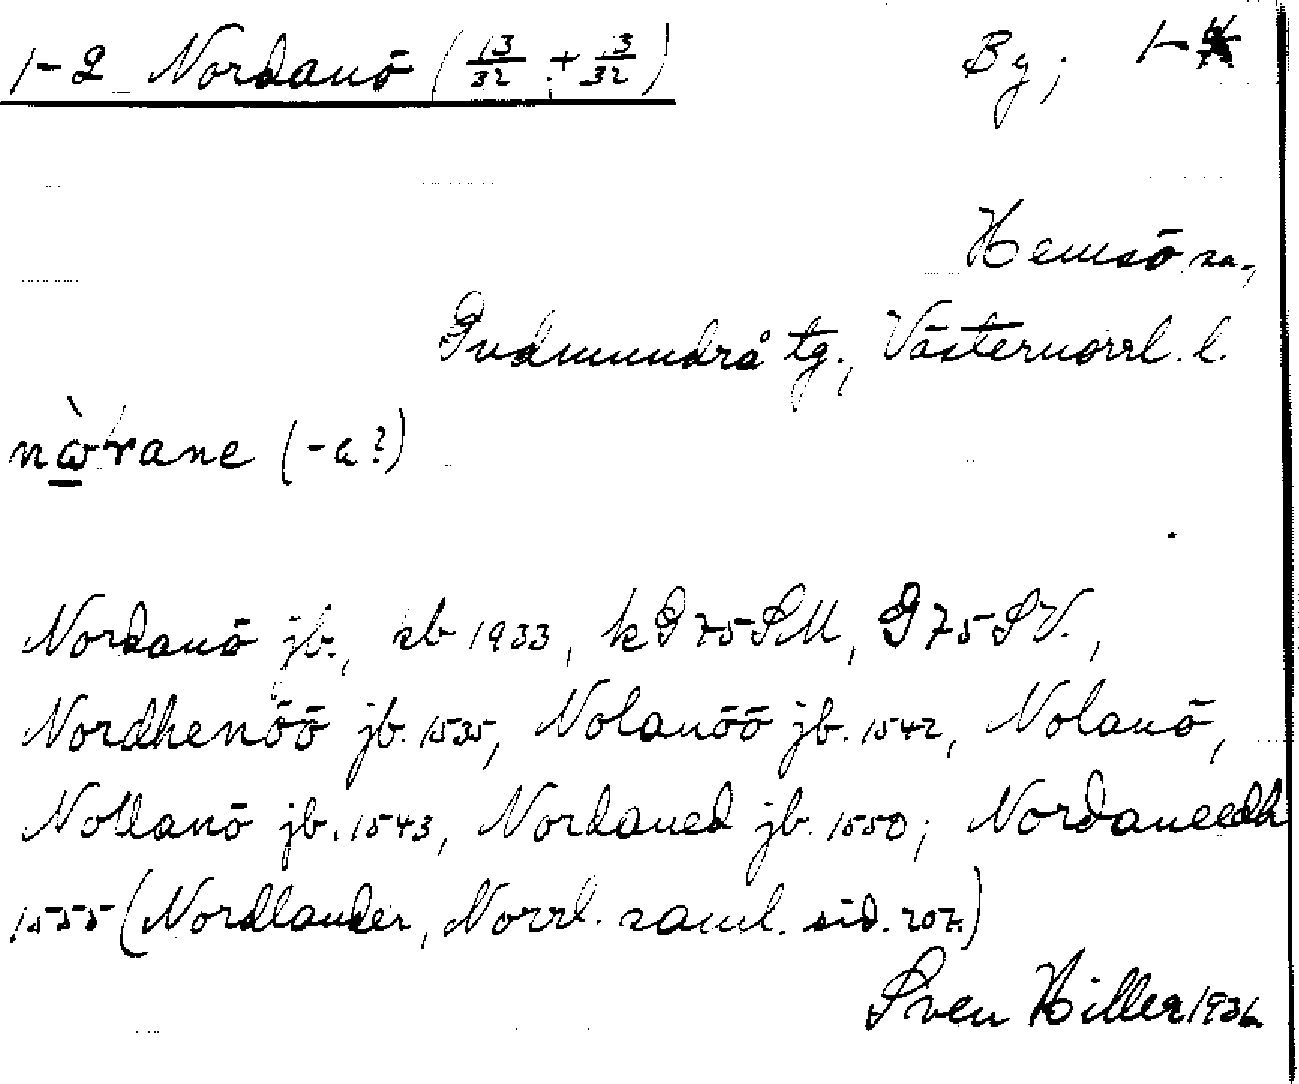 1-2 Nordanö (13/32 + 13/32) By; 1-
Hemsö sn.,
Gudmundrå tg., Västernorrl. l.
nὼrane (-a?)
Nordanö jb., kb 1933, kG 75 SM, G 75 SV.,
Nordhenöö jb. 1535, Nolanöö jb. 1542, Nolanö,
Nollanö jb. 1543, Nordaned jb. 1550; Nordaneedh
1555 (Nordlander, Norrl. saml. sid. 207.)
Sven Hiller 1936